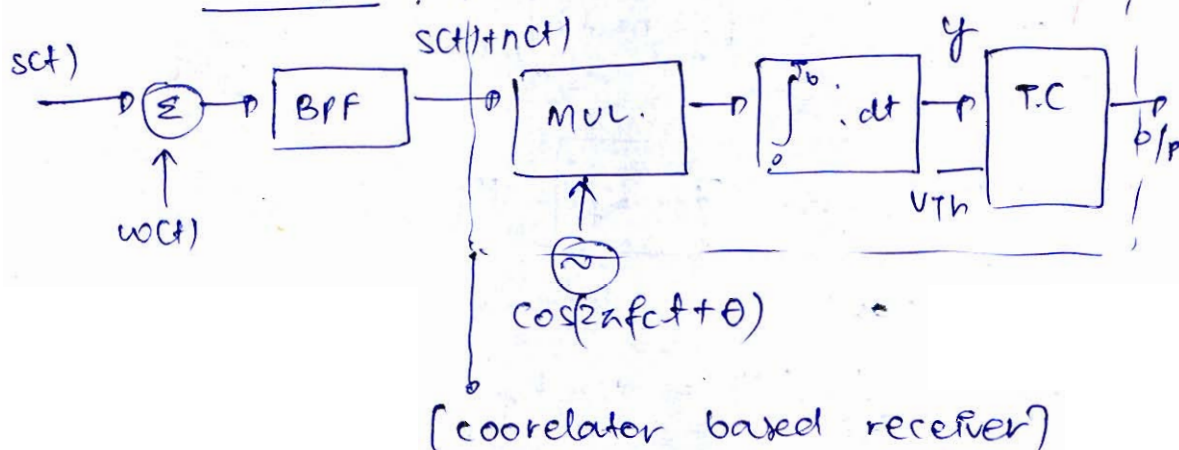 s(t)+n(t)
s(t)
Σ
BPF
MUL.
∫₀ᵀᵇ . dt
y
T.C
o/p
w(t)
VTh
~
cos(2πfct+θ)
[coorelator based receiver]